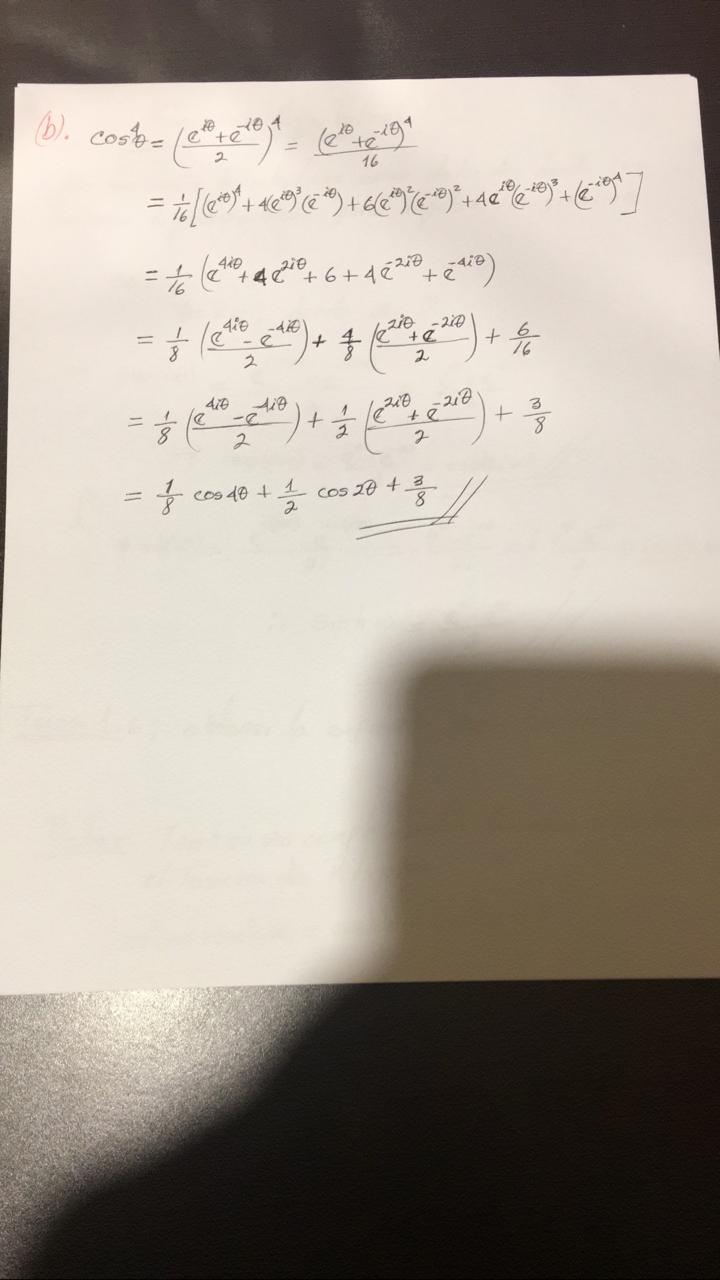 (b). cos⁴θ = ((e^{iθ} + e^{-iθ})/2)^4 = (e^{iθ} + e^{-iθ})^4/16
= 1/16 [(e^{iθ})^4 + 4(e^{iθ})^3(e^{-iθ}) + 6(e^{iθ})^2(e^{-iθ})^2 + 4e^{iθ}(e^{-iθ})^3 + (e^{-iθ})^4]
= 1/16 (e^{4iθ} + 4e^{2iθ} + 6 + 4e^{-2iθ} + e^{-4iθ})
= 1/8 ((e^{4iθ} - e^{-4iθ})/2) + 4/8 ((e^{2iθ} + e^{-2iθ})/2) + 6/16
= 1/8 ((e^{4iθ} - e^{-4iθ})/2) + 1/2 ((e^{2iθ} + e^{-2iθ})/2) + 3/8
= 1/8 cos 4θ + 1/2 cos 2θ + 3/8 //